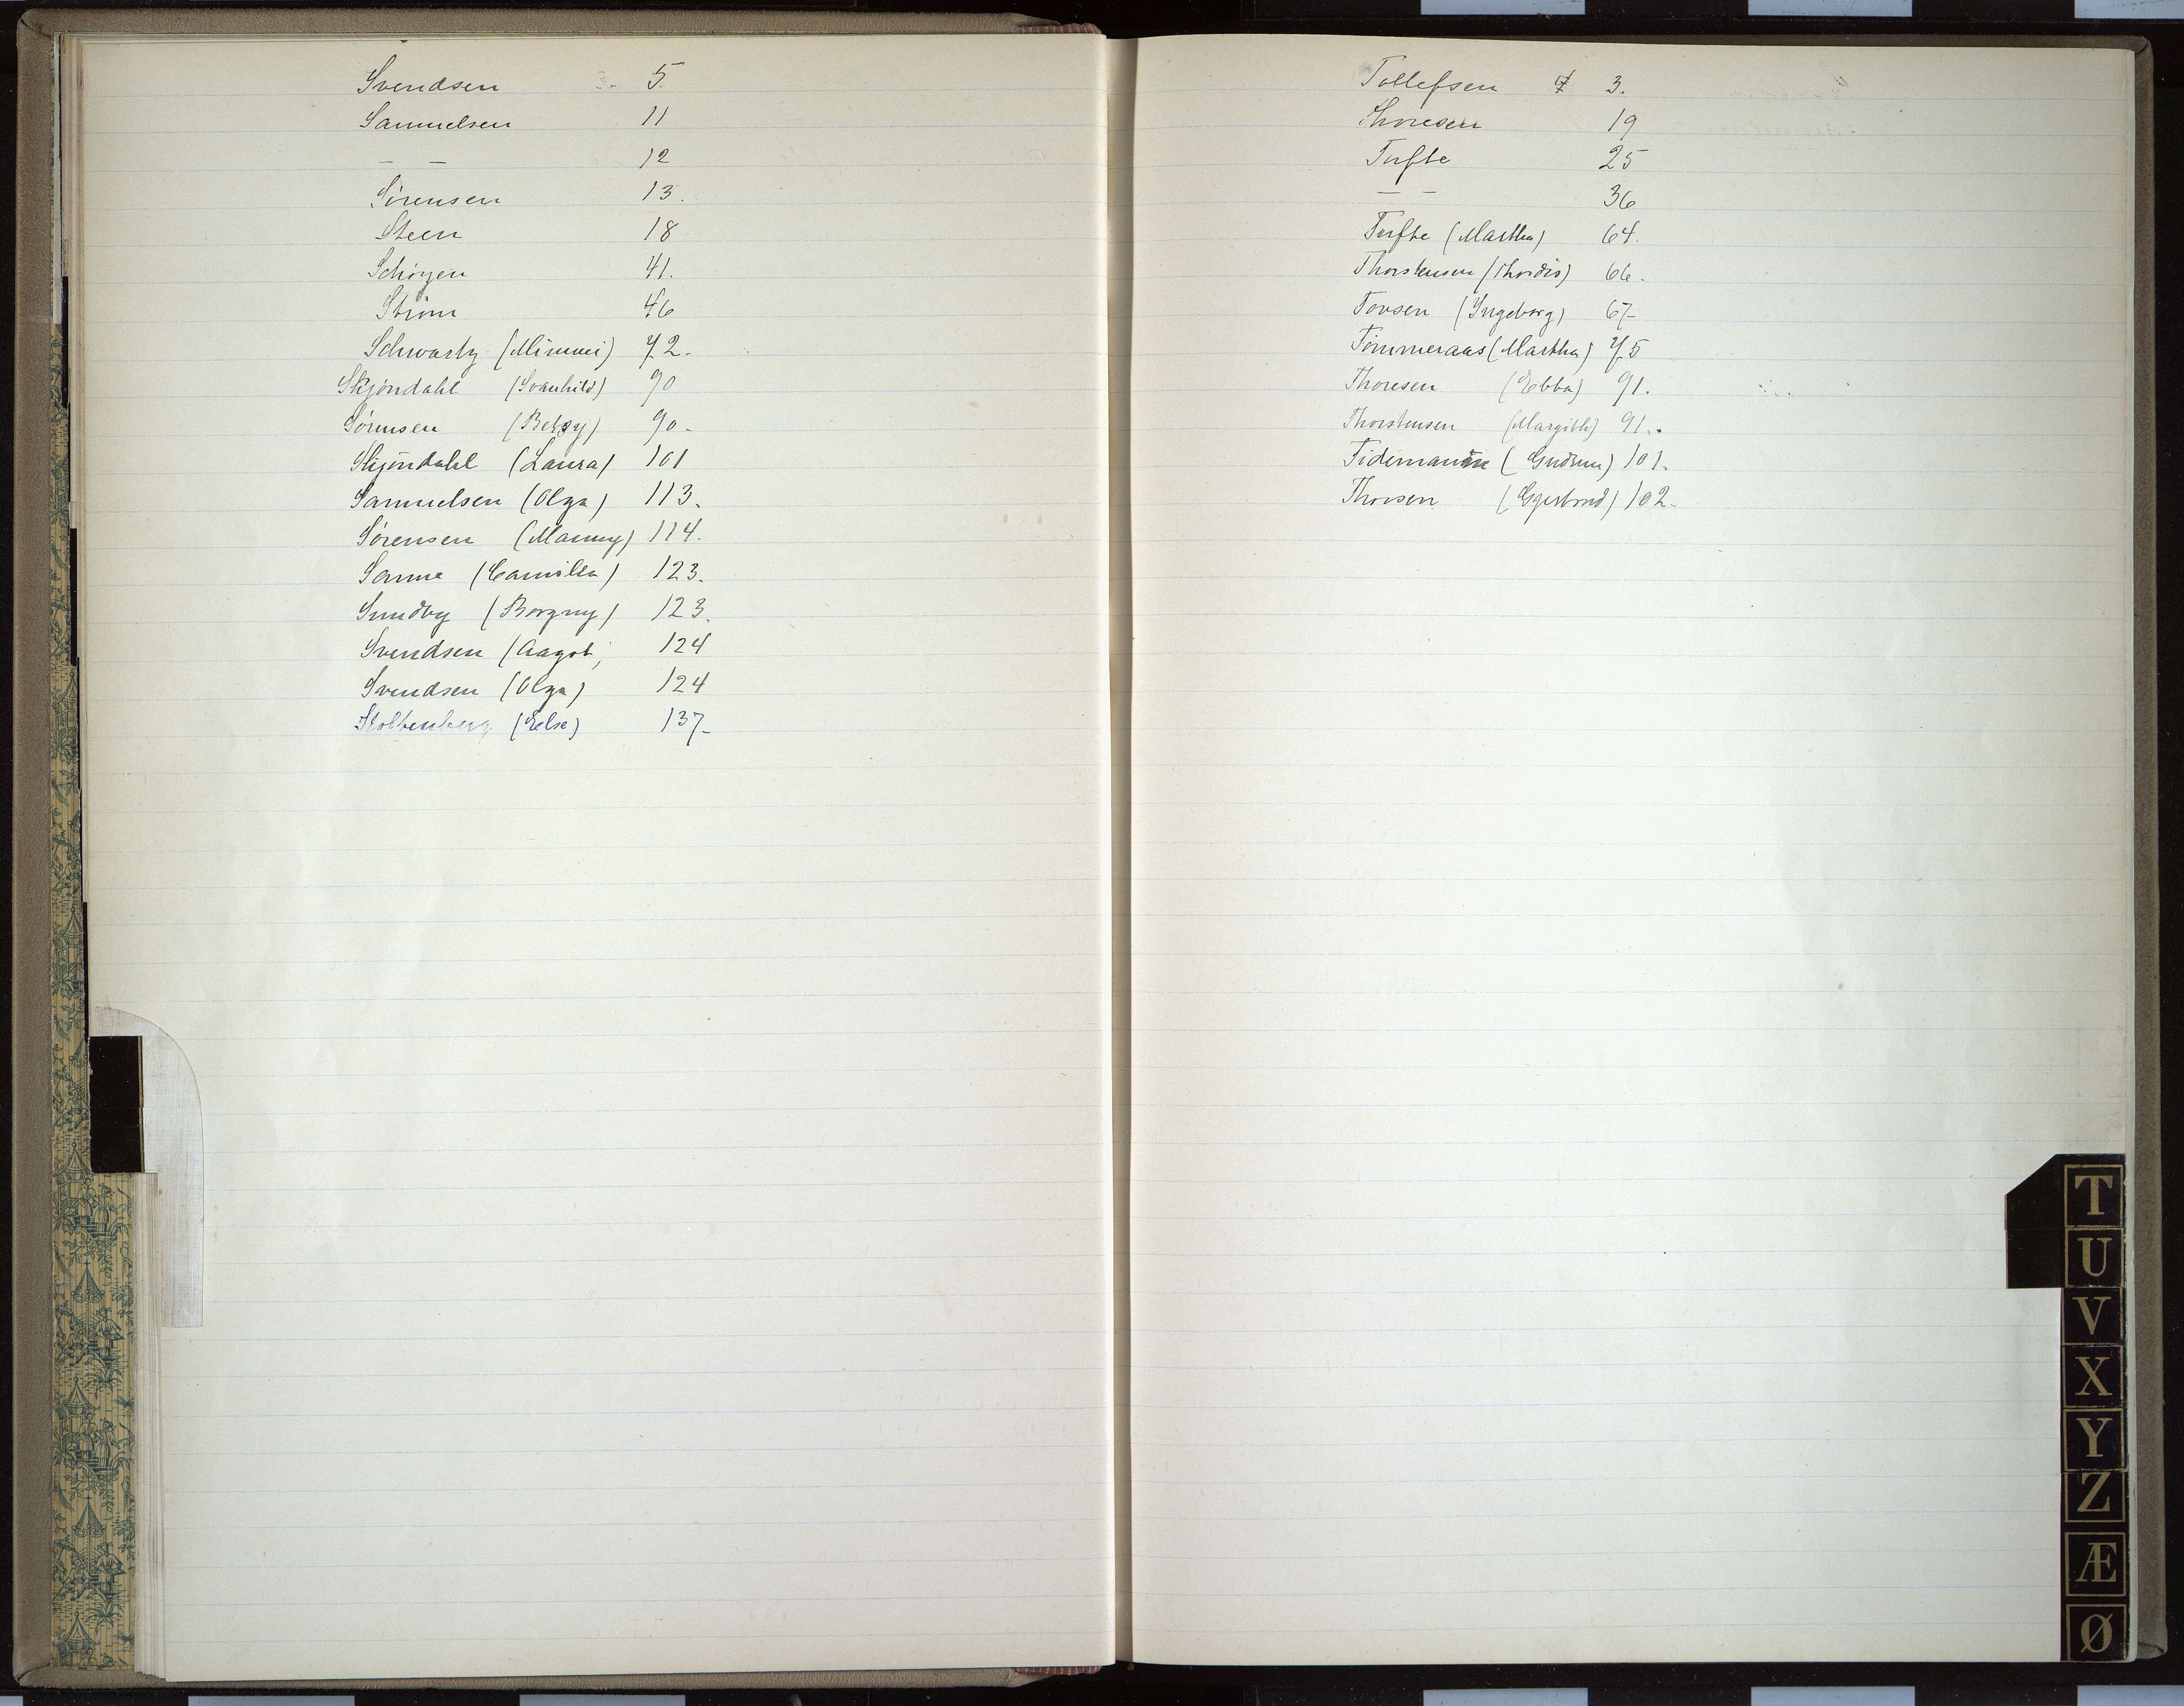 Svendsen 5.
Samuelsen 11
— — 12
Sørensen 13.
Steen 18
Schøyen 41.
Strøm 46
Schwartz (Mimmi) 72.
Skjøndahl (Svanhild) 90
Sørensen (Betzy) 90-
Skjøndahl (Laura) 101
Samuelsen (Olga) 113.
Sørensen (Manny) 114.
Sanne (Camilla) 123.
Sundby (Borgny) 123.
Svendsen (Aagot) 124
Svendsen (Olga) 124
Stoltenberg (Else) 137-
Tollefsen 3.
Thoresen 19
Tufte 25
— — 36
Tufte (Martha) 64.
Thorstensen (Thordis) 66.
Torsen (Ingeborg) 67-
Tømmeraas (Martha) 75
Thoresen (Ebba) 91.
Thorstensen (Margith) 91.
Tidemann (Gudrun) 101.
Thorsen 102-
T
U
V
X
Y
Z
Æ
Ø